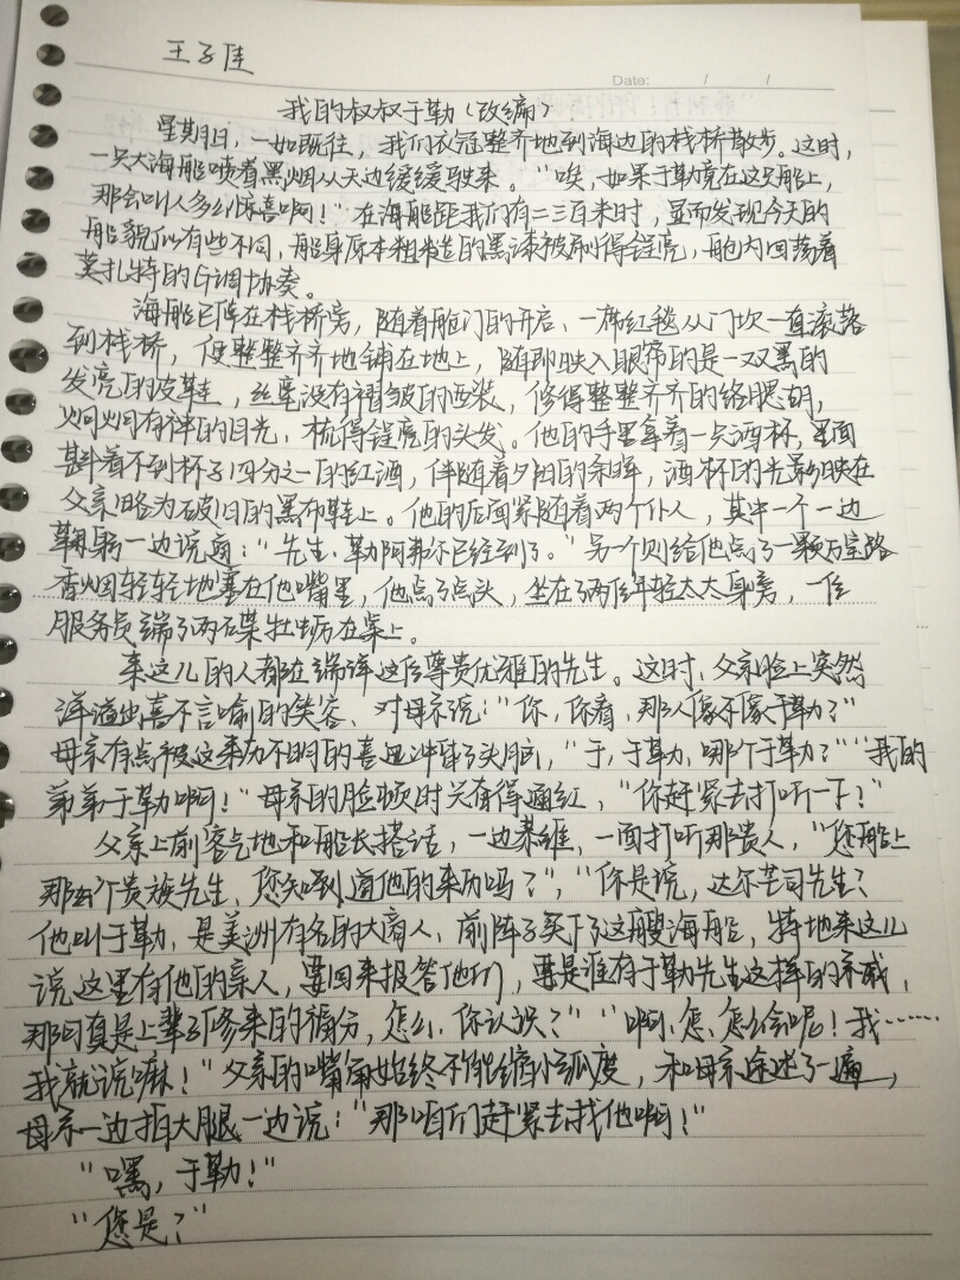 王子佳
Date: / /
我的叔叔于勒（改编）
星期日，一如既往，我们衣冠整齐地到海边的栈桥散步。这时，
一只大海船喷着黑烟从天边缓缓驶来。"唉，如果于勒竟在这只船上，
那会叫人多么惊喜啊！"在海船距我们有二三百米时，显而发现今天的
船貌似有些不同，船身原本粗糙的黑漆被刷得锃亮，舱内回荡着
莫扎特的G调协奏。
海船已停在栈桥旁，随着舱门的开启、一席红毯从门坎一直滚落
到栈桥，便整整齐齐地铺在地上，随即映入眼帘的是一双黑的
发亮的皮鞋，丝毫没有褶皱的西装，修得整整齐齐的络腮胡，
炯炯有神的目光，梳得锃亮的头发。他的手里拿着一只酒杯，里面
斟着不到杯子四分之一的红酒，伴随着夕阳的余晖，酒杯的光影映在
父亲略为破旧的黑布鞋上。他的后面紧随着两个仆人，其中一个一边
鞠躬一边说道："先生，勒阿弗尔已经到了。"另一个则给他点了一颗万宝路
香烟轻轻地塞在他嘴里，他点了点头，坐在了两位年轻太太身旁，一位
服务员端了两碟牡蛎在桌上。
来这儿的人都在端详这位尊贵优雅的先生。这时，父亲脸上突然
洋溢出喜不言喻的笑容、对母亲说："你，你看，那人像不像于勒？"
母亲有点被这来历不明的喜迅冲昏了头脑，"于，于勒，哪个于勒？""我的
弟弟于勒啊！"母亲的脸顿时兴奋得通红，"你赶紧去打听一下？"
父亲上前客气地和船长搭话，一边恭维，一面打听那贵人，"您船上
那个贵族先生，您知道他的来历吗？"，"你是说，达尔芒司先生？
他叫于勒，是美洲有名的大商人，前阵子买下了这艘海船，特地来这儿
说这里有他的亲人，要回来报答他们，要是谁有于勒先生这样的亲戚，
那可真是上辈子修来的福分，怎么，你认识？""啊、怎、怎么会呢！我……
我就说嘛！"父亲的嘴角始终不能缩小弧度，和母亲途述了一遍，
母亲一边拍大腿一边说："那咱们赶紧去找他啊！"
"嘿，于勒！"
"您是？"